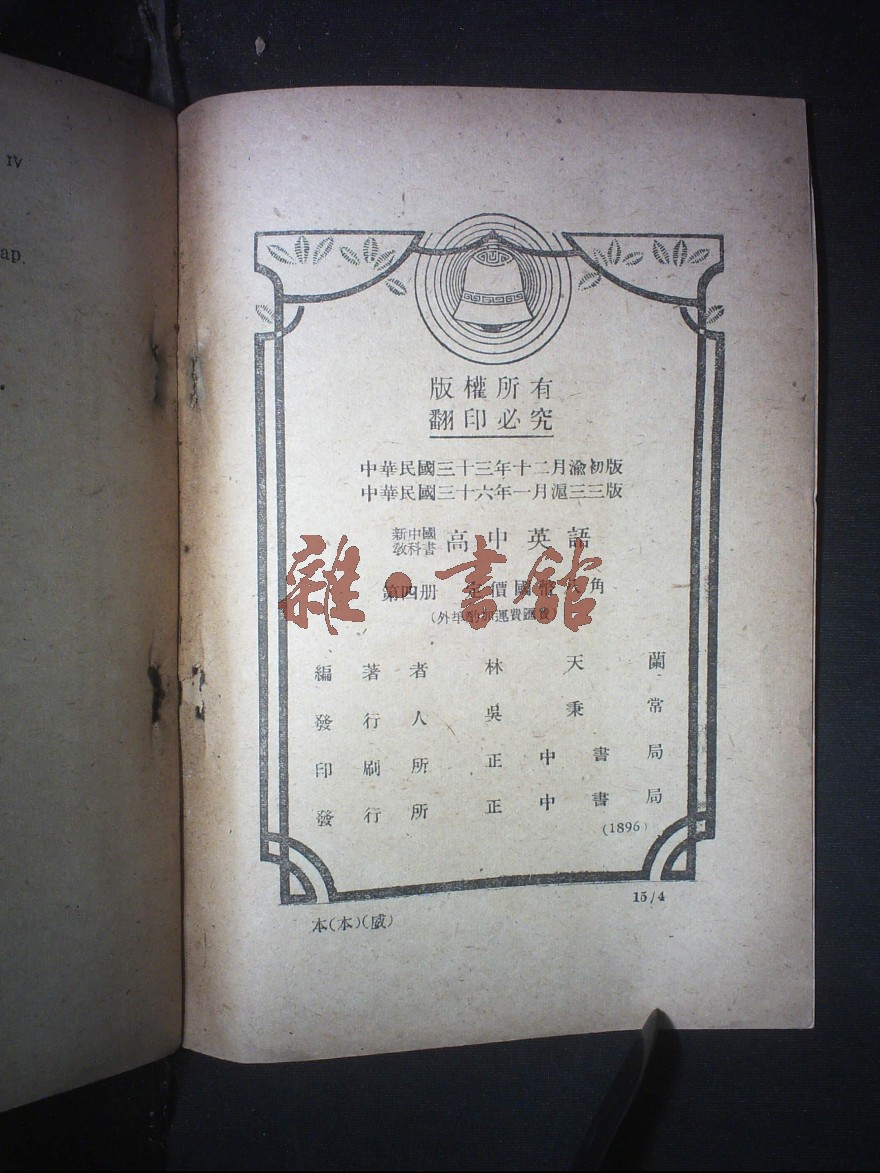 IV
ap.
版權所有
翻印必究
中華民國三十三年十二月渝初版
中華民國三十六年一月滬三三版
新中國教科書 高中英語
第四册 定價國幣 角
(外埠酌加運費匯費)
編著者 林天蘭
發行人 吳秉常
印刷所 正中書局
發行所 正中書局
(1896)
15/4
本(本)(盛)
雜·書館